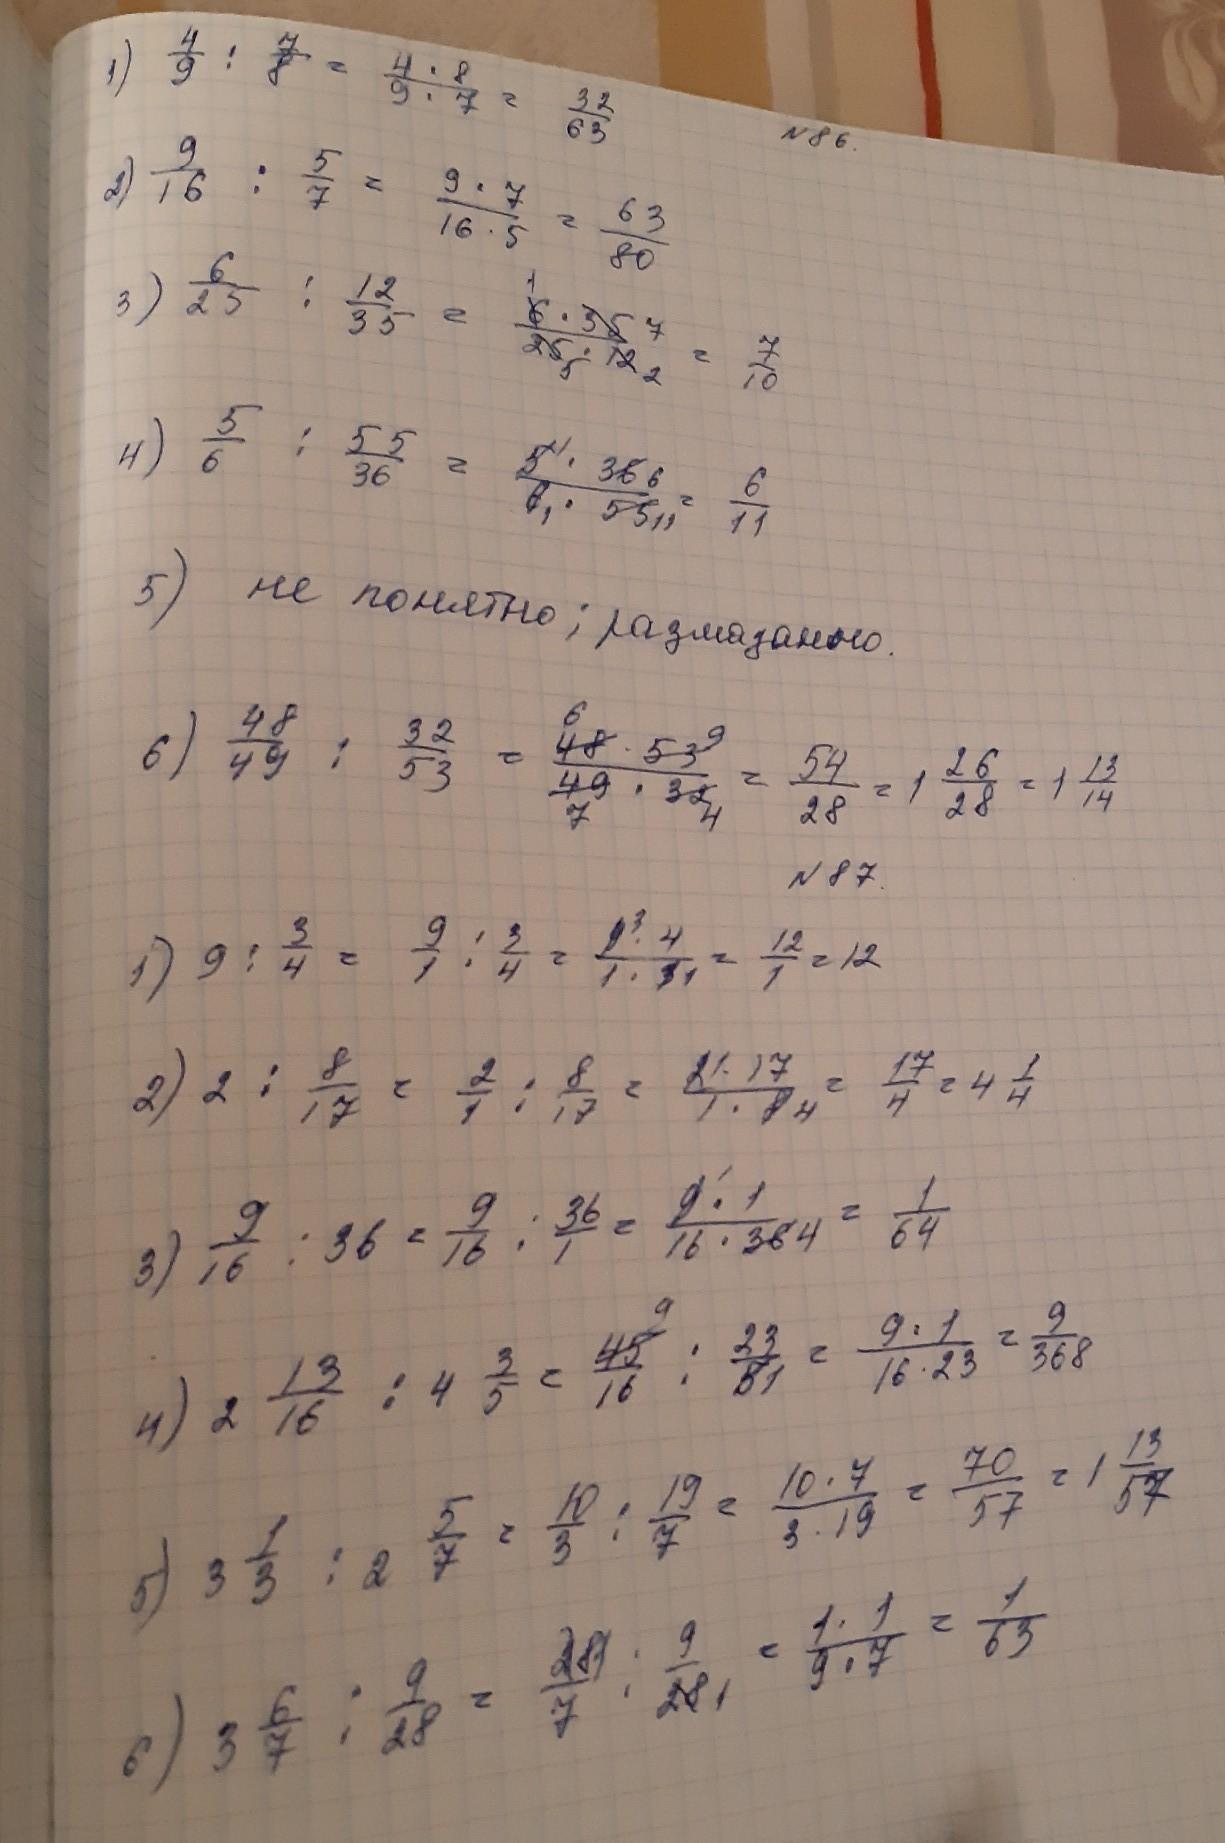 1) 4/9 : 7/8 = 4·8/9·7 = 32/63
N86.
2) 9/16 : 5/7 = 9·7/16·5 = 63/80
3) 6/25 : 12/35 = 6 1·35 7/25 5·12 2 = 7/10
4) 5/6 : 55/36 = 5 1·36 6/6 1·55 11 = 6/11
5) не понятно; размазанно.
6) 48/49 : 32/53 = 48 6·53 9/49 7·32 4 = 54/28 = 1 26/28 = 1 13/14
N87.
1) 9 : 3/4 = 9/1 : 3/4 = 9 3·4/1·3 1 = 12/1 = 12
2) 2 : 8/17 = 2/1 : 8/17 = 2 1·17/1·8 4 = 17/4 = 4 1/4
3) 9/16 : 36 = 9/16 : 36/1 = 9 1·1/16·36 4 = 1/64
4) 2 13/16 : 4 3/5 = 45 9/16 : 23/5 1 = 9·1/16·23 = 9/368
5) 3 1/3 : 2 5/7 = 10/3 : 19/7 = 10·7/3·19 = 70/57 = 1 13/57
6) 3 6/7 : 9/28 = 28 1/7 : 9/28 1 = 1·1/9·7 = 1/63